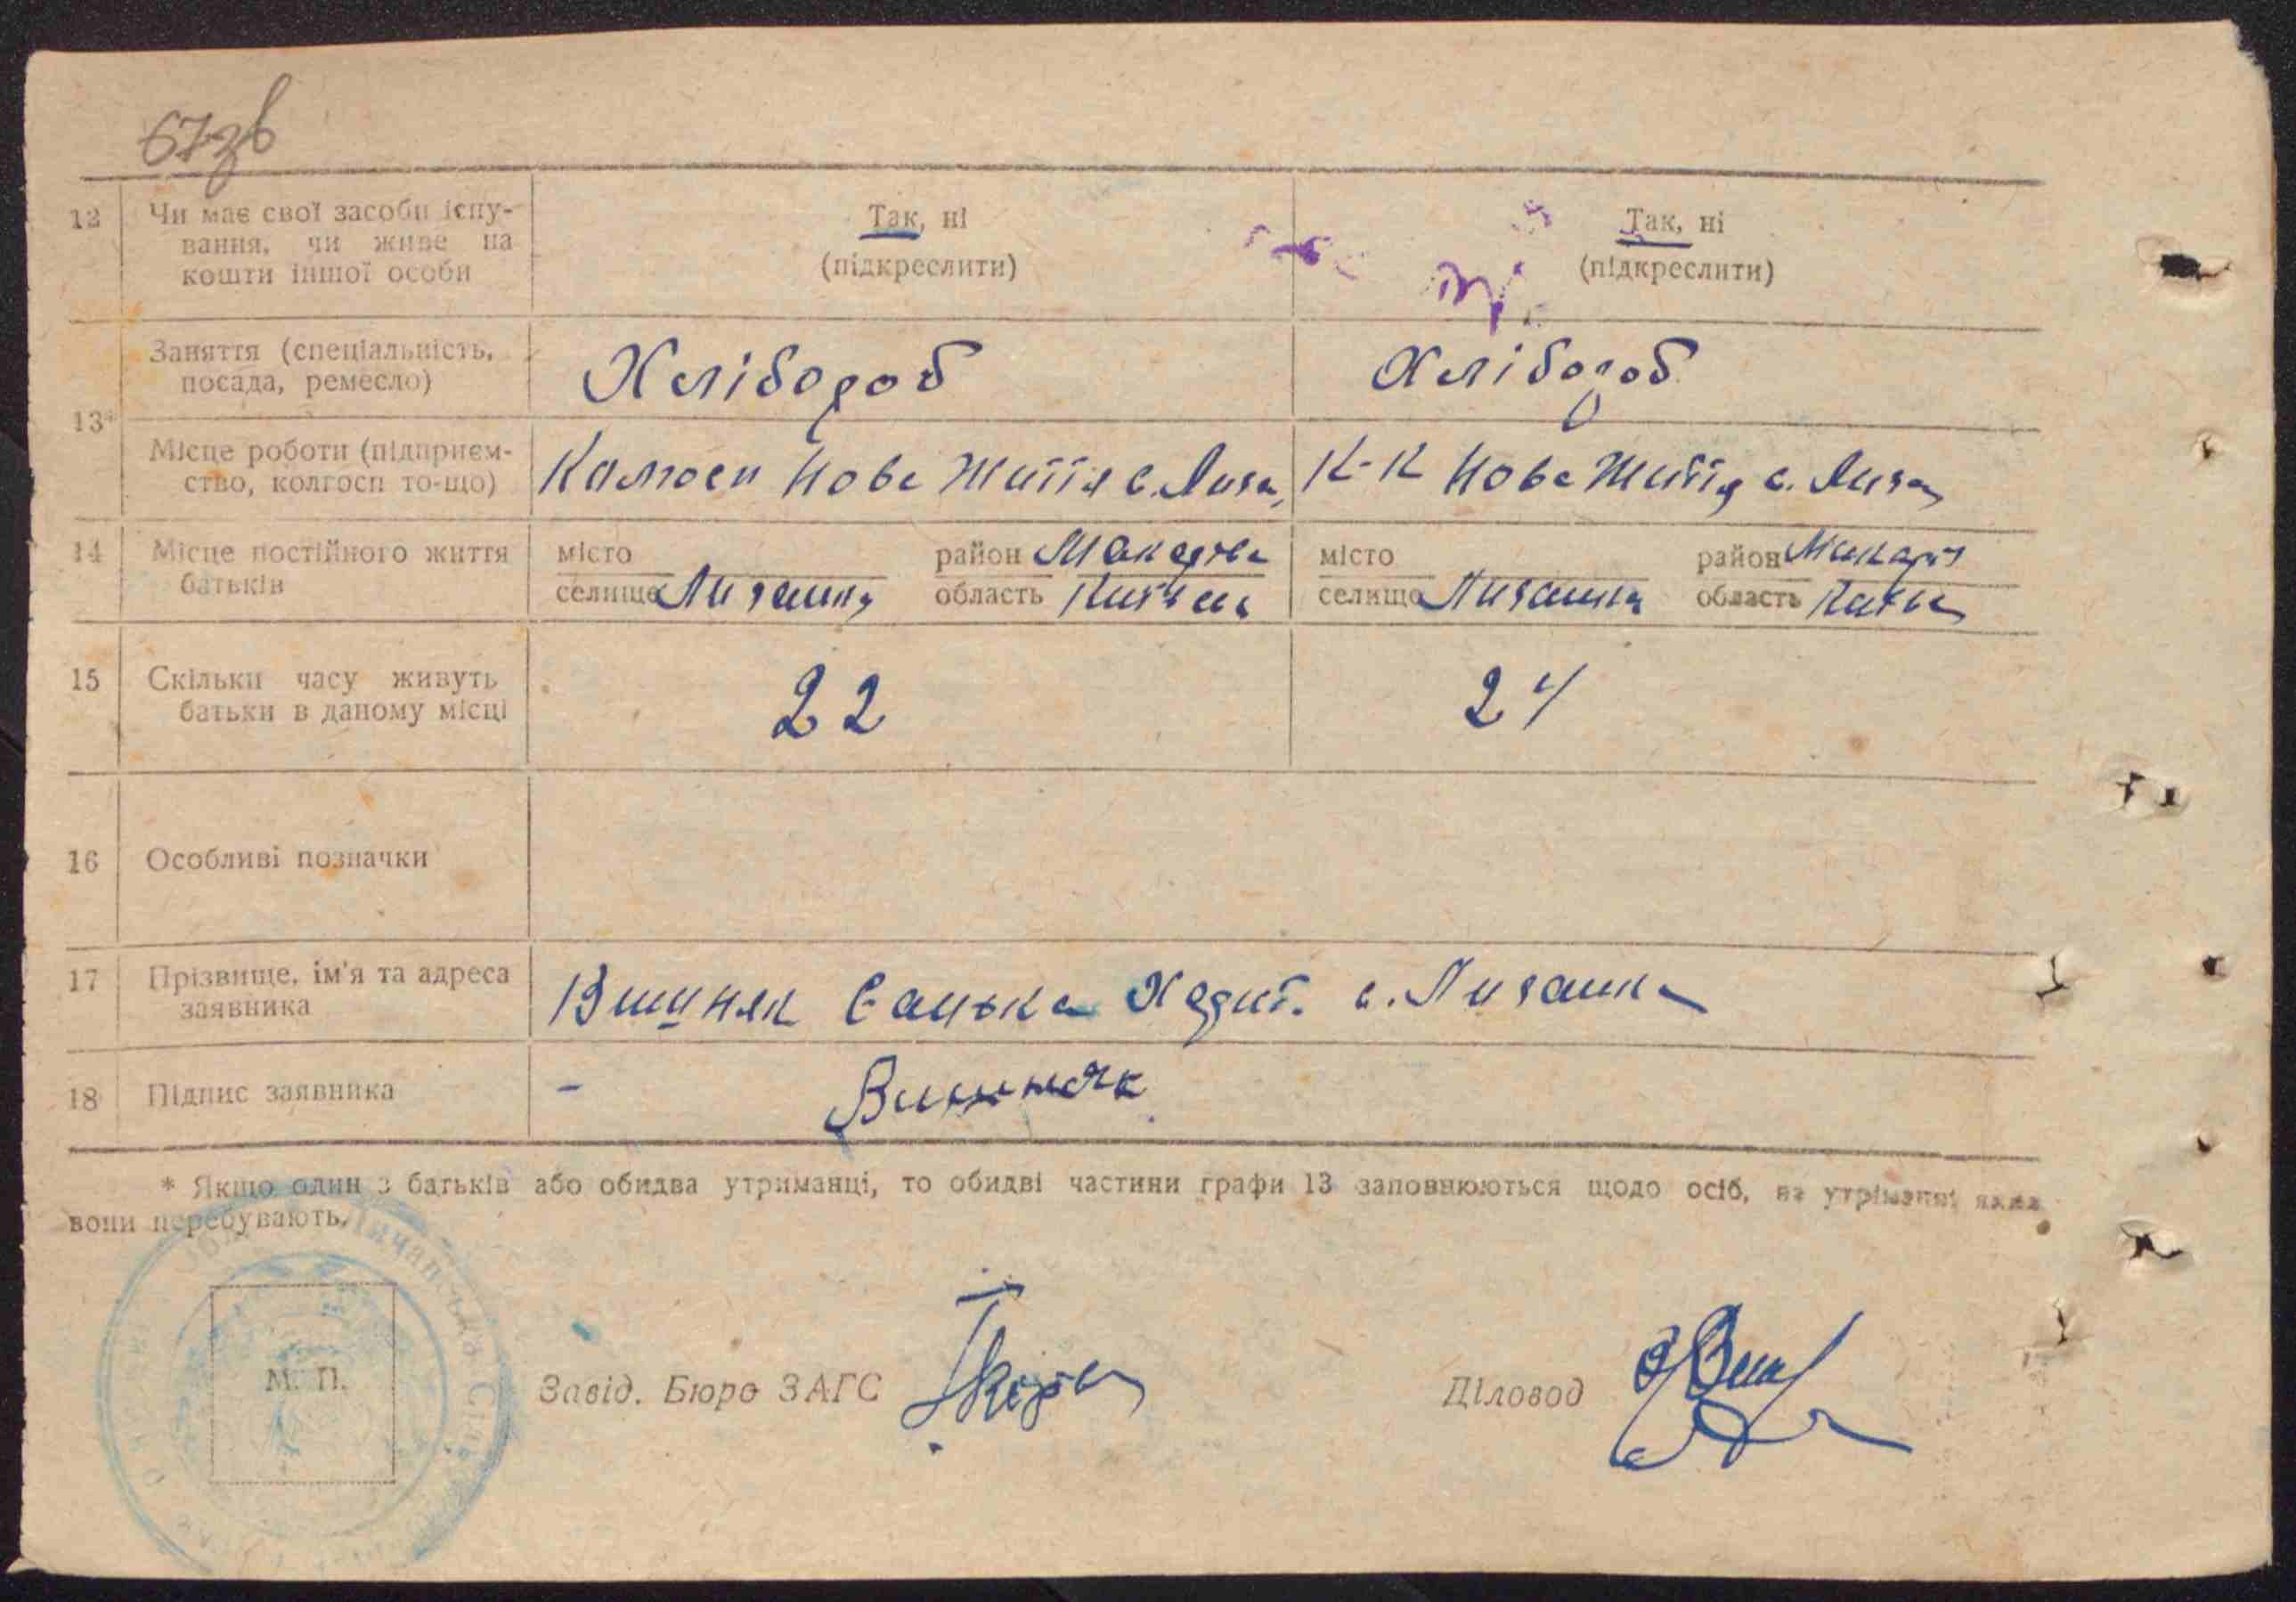 67зв
12 Чи має свої засоби існу-
вання, чи живе на
кошти іншої особи
Так, ні
(підкреслити)
Так, ні
(підкреслити)
13*
Заняття (спеціальність,
посада, ремесло)
Хлібороб
Хлібороб
Місце роботи (підприєм-
ство, колгосп то-що)
Колгосп Нове Життя с. Лича
К-К Нове Життя с. Лича
14 Місце постійного життя
батьків
місто район Макарів
селище Личанка область Київськ
місто район Макарів
селище Личанка область Київ
15 Скільки часу живуть
батьки в даному місці
22
24
16 Особливі позначки
17 Прізвище, ім'я та адреса
заявника
Вишняк Санька с. Личанка
18 Підпис заявника
- Вишняк
* Якщо один з батьків або обидва утриманці, то обидві частини графи 13 заповнюються щодо осіб, на утриманні яких
вони перебувають.
Личанська Сіль
М. П.
Завід. Бюро ЗАГС
Діловод